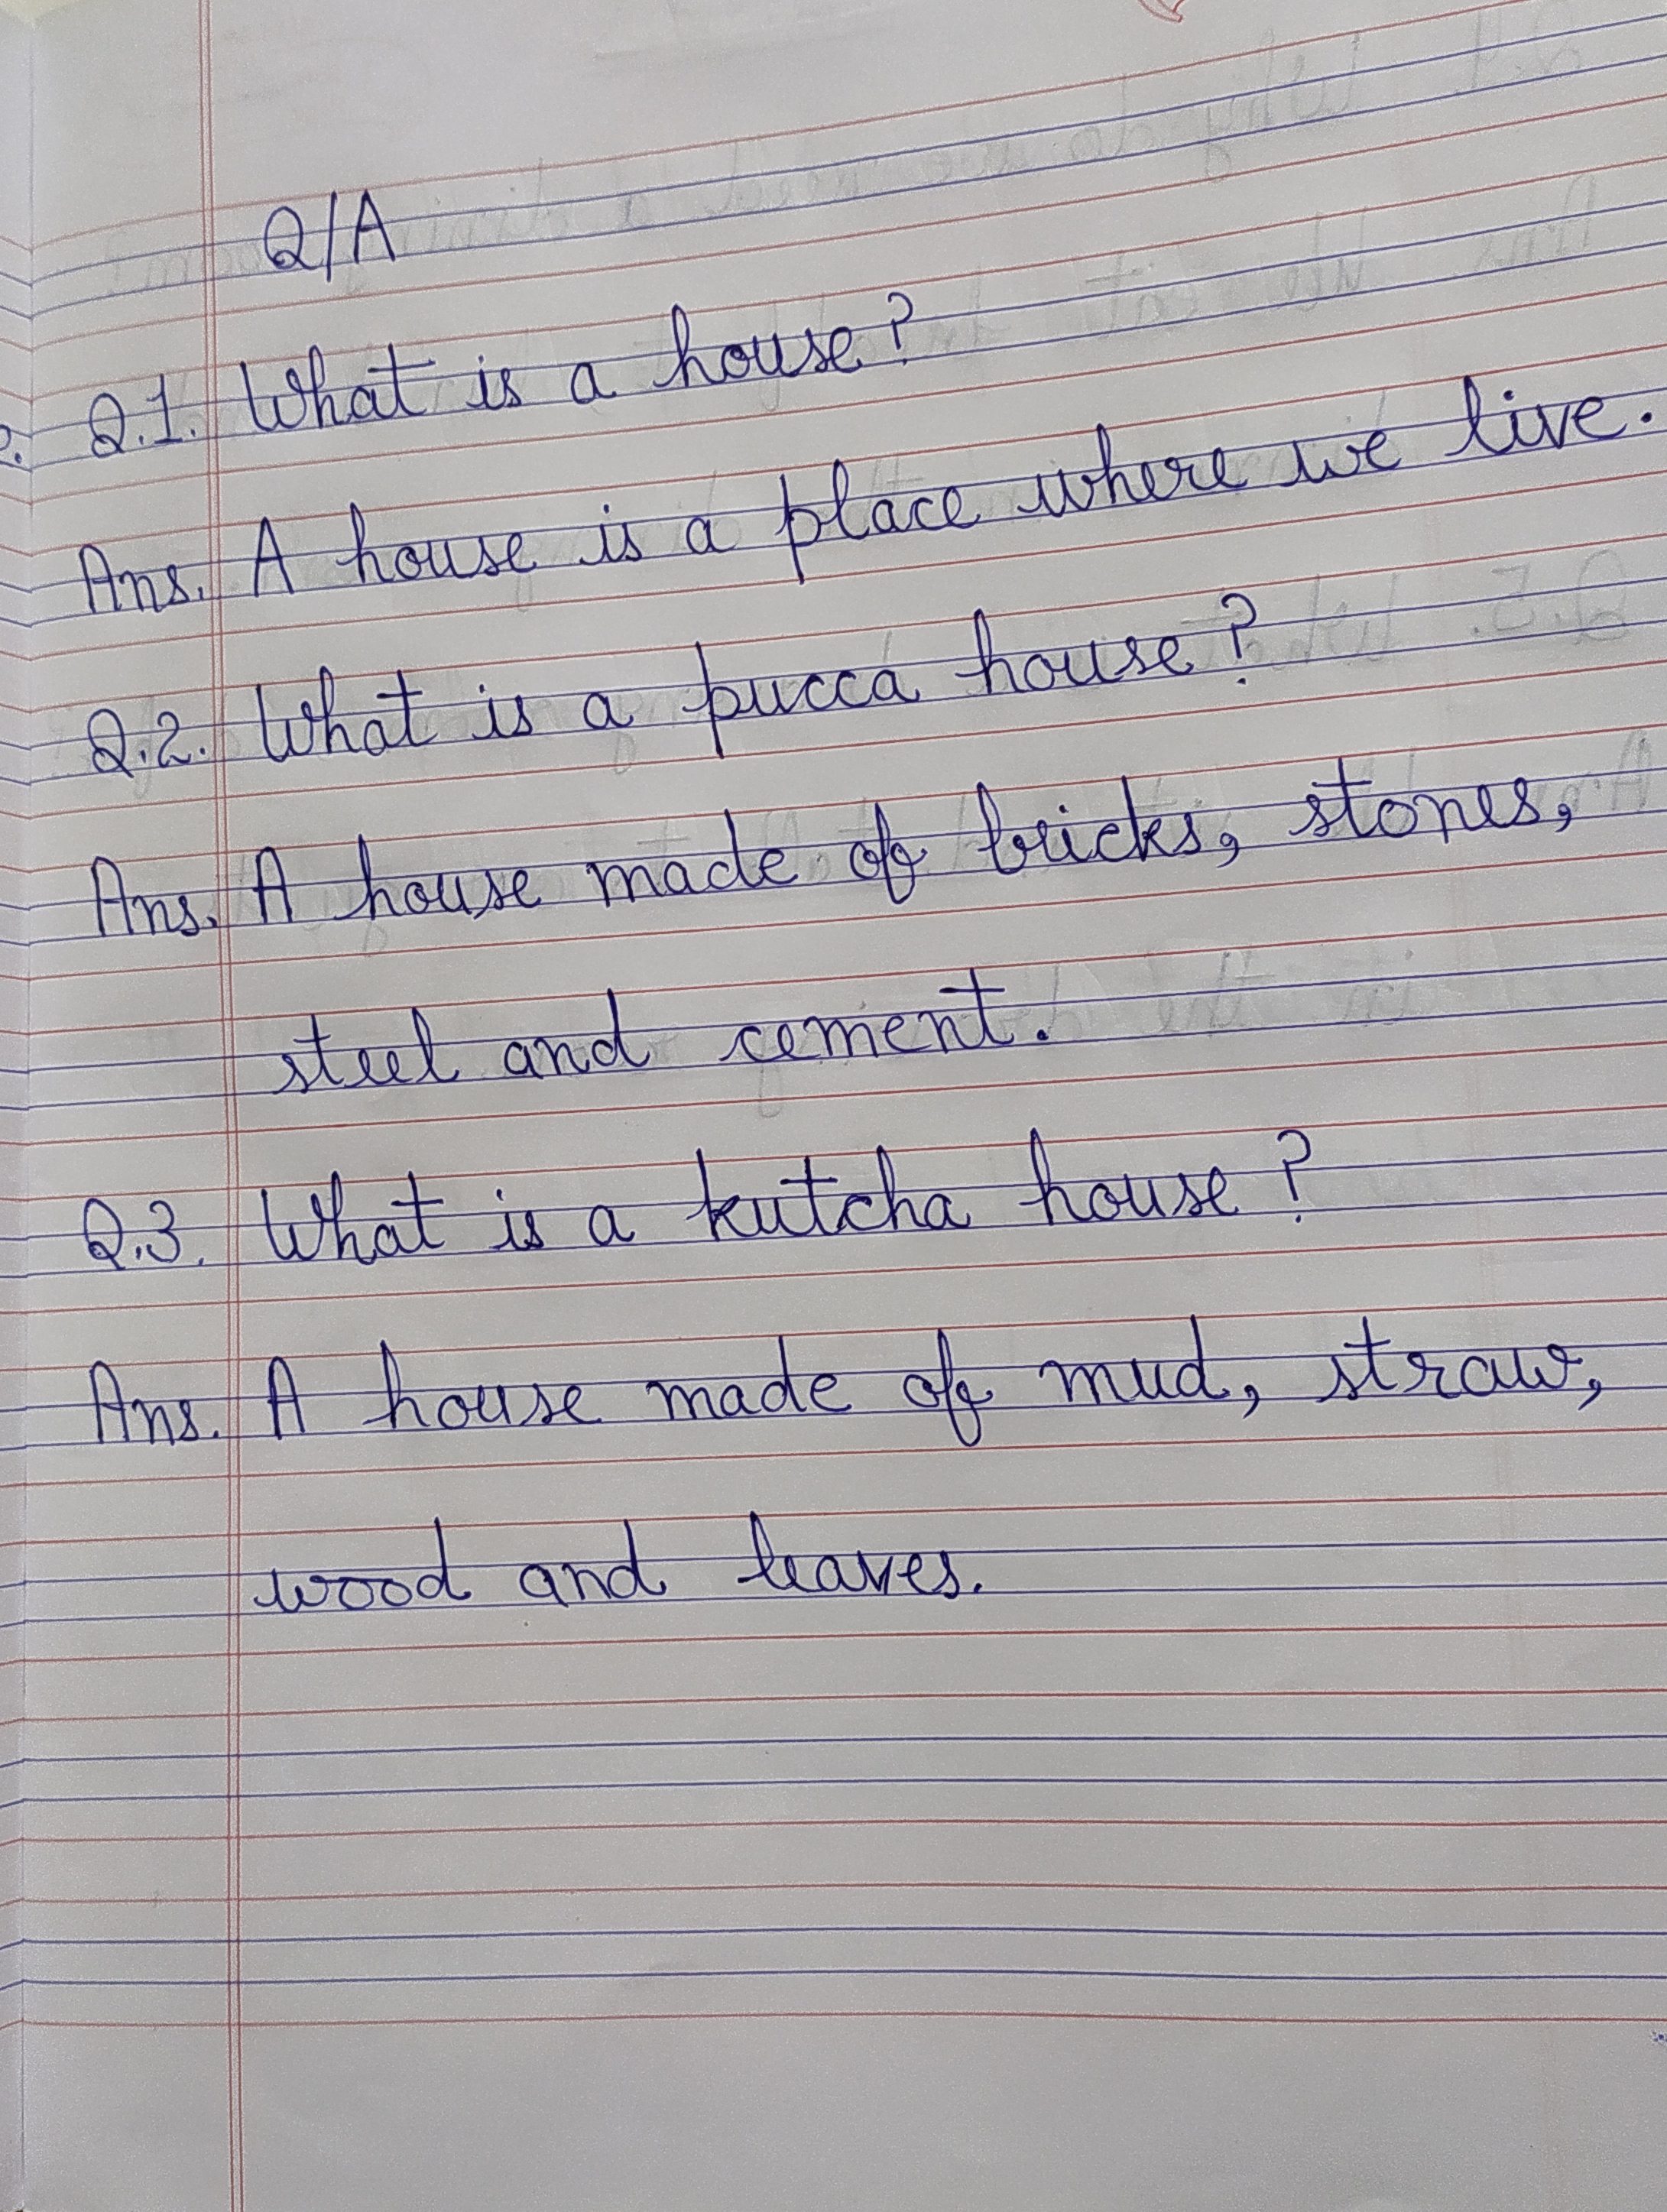 Q/A
Q.1. What is a house?
Ans. A house is a place where we live.
Q.2. What is a pucca house?
Ans. A house made of bricks, stones,
steel and cement.
Q.3. What is a kutcha house?
Ans. A house made of mud, straw,
wood and leaves.